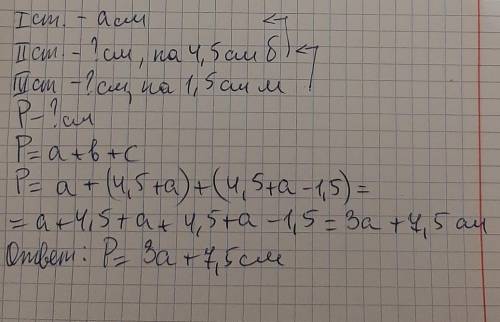 I ст. - a см
II ст. - ? см, на 4,5 см б
III ст - ? см, на 1,5 см м
P - ? см
P = a + b + c
P = a + (4,5 + a) + (4,5 + a - 1,5) =
= a + 4,5 + a + 4,5 + a - 1,5 = 3a + 7,5 см
Ответ: P = 3a + 7,5 см